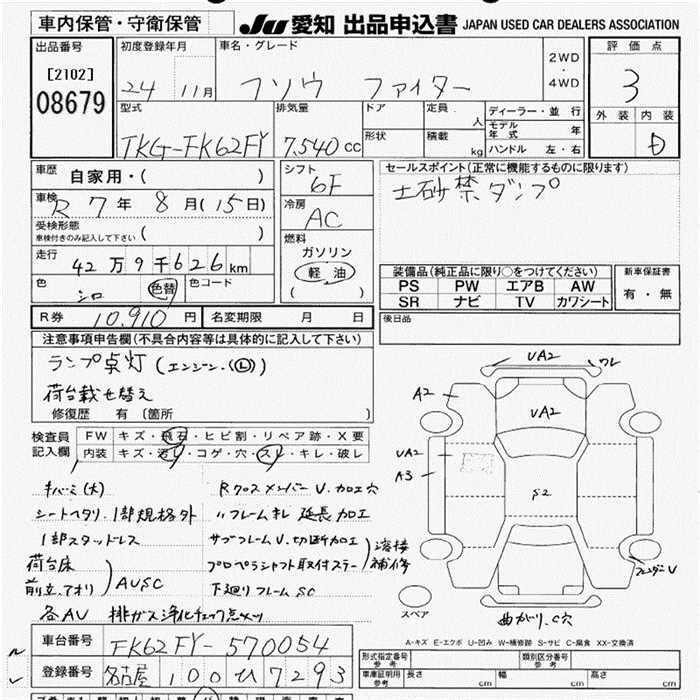 車内保管・守衛保管 JU 愛知 出品申込書 JAPAN USED CAR DEALERS ASSOCIATION
出品番号 [2102] 08679
初度登録年月 24 11月
車名・グレード フソウ ファイター
2WD・4WD
評価点 3
外装 内装 D
型式 TKG-FK62FY
排気量 7,540 cc
ドア 定員 人
形状 積載 kg
ディーラー・並行
モデル年式 年
ハンドル 左・右
車歴 自家用・( )
シフト 6F
セールスポイント(正常に機能するものに限ります)
土砂禁ダンプ
車検 R7年8月(15日)
冷房 AC
受検形態 車検付きのみ記入して下さい ( )
燃料 ガソリン 軽油 ( )
走行 42万9千626km
色 シロ 色替 色コード
装備品(純正品に限り○をつけてください)
PS PW エアB AW
SR ナビ TV カワシート
新車保証書 有・無
R券 10,910円 名変期限 月 日
後日品
注意事項申告欄(不具合内容等は具体的に記入して下さい)
ランプ点灯(エンジン.(L))
荷台載せ替え
修復歴 有 [箇所 ]
検査員記入欄
FW キズ・飛石・ヒビ割・リペア跡・X要
内装 キズ・汚レ・コゲ・穴・スレ・キレ・破レ
キバミ(大)
シートヘタリ.1部規格外
1部スタッドレス
荷台床
前立.アオリ
AUSC
各AU 排ガス浄化チェック点メツ
Rクロスメンバー U.加工穴
〃フレームキレ 延長加工
サブフレームU.切断加工
プロペラシャフト取付ステー
溶接補修
下廻りフレームSC
UA2
ワレ
A2
UA2
UA2
A3
S2
フェンダーU
スペア
曲がり.C穴
A-キズ E-エクボ U-凹み W-補修跡 S-サビ C-腐食 XX-交換済
車台番号 FK62FY-570054
登録番号 名古屋 100 ひ 7293
型式指定番号 参考
類別区分番号 参考
車庫証明用 参考 長さ cm 幅 cm 高さ cm